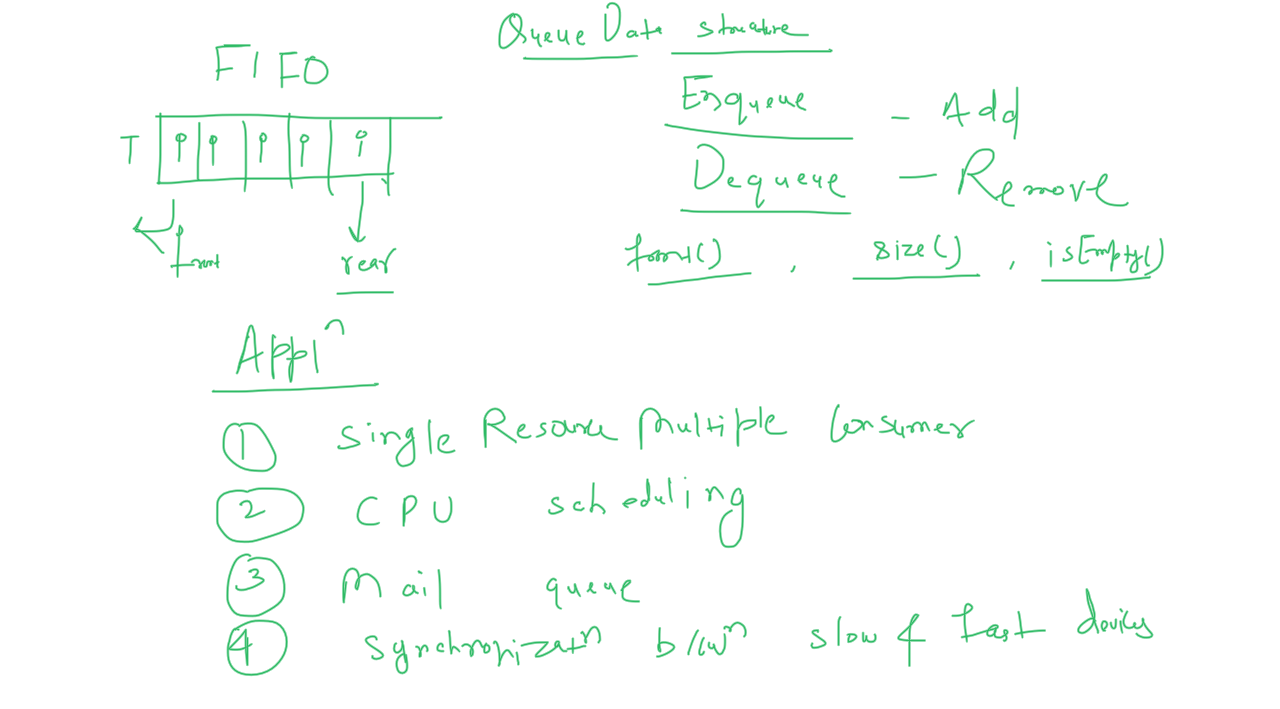 Queue Data structure
FIFO
Enqueue - Add
T
Dequeue - Remove
front
rear
front() , size() , isEmpty()
Appl^n
1 Single Resource Multiple Consumer
2 CPU scheduling
3 Mail queue
4 Synchronizat^n b/w^n slow & fast devices